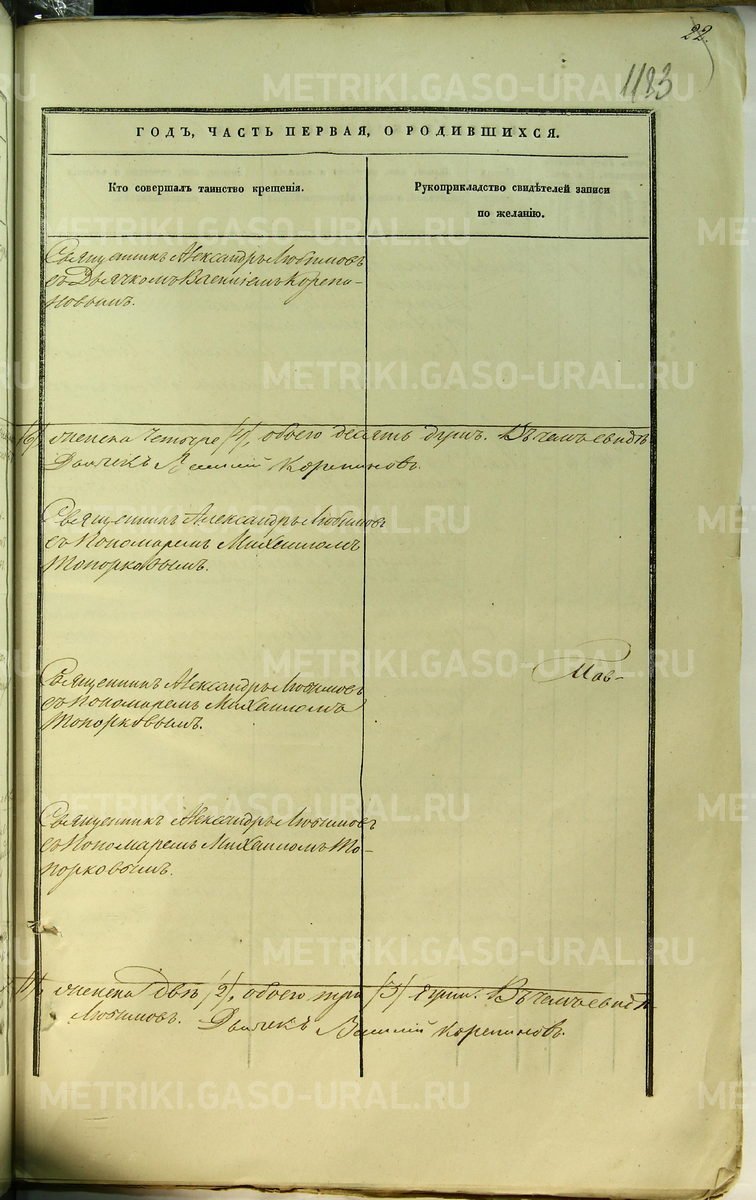 22.
1183
ГОДЪ, ЧАСТЬ ПЕРВАЯ, О РОДИВШИХСЯ.
Кто совершалъ таинство крещенія.
Рукоприкладство свидѣтелей записи
по желанію.
Священникъ Александръ Любимовъ
съ Дьячкомъ Василіемъ Корепи-
новымъ.
/6/ женска четыре /4/, обоего десять душъ. Въ чемъ свидѣ
Дьячекъ Василій Корепиновъ.
Священникъ Александръ Любимовъ
съ Пономаремъ Михаиломъ
Топорковымъ.
Священникъ Александръ Любимовъ
съ Пономаремъ Михаиломъ
Топорковымъ.
Мав-
Священникъ Александръ Любимовъ
съ Пономаремъ Михаиломъ То-
порковымъ.
/1/, женска двѣ /2/, обоего три /3/ души. Въ чемъ свидѣ
Любимовъ. Дьячекъ Василій Корепиновъ.
METRIKI.GASO-URAL.RU